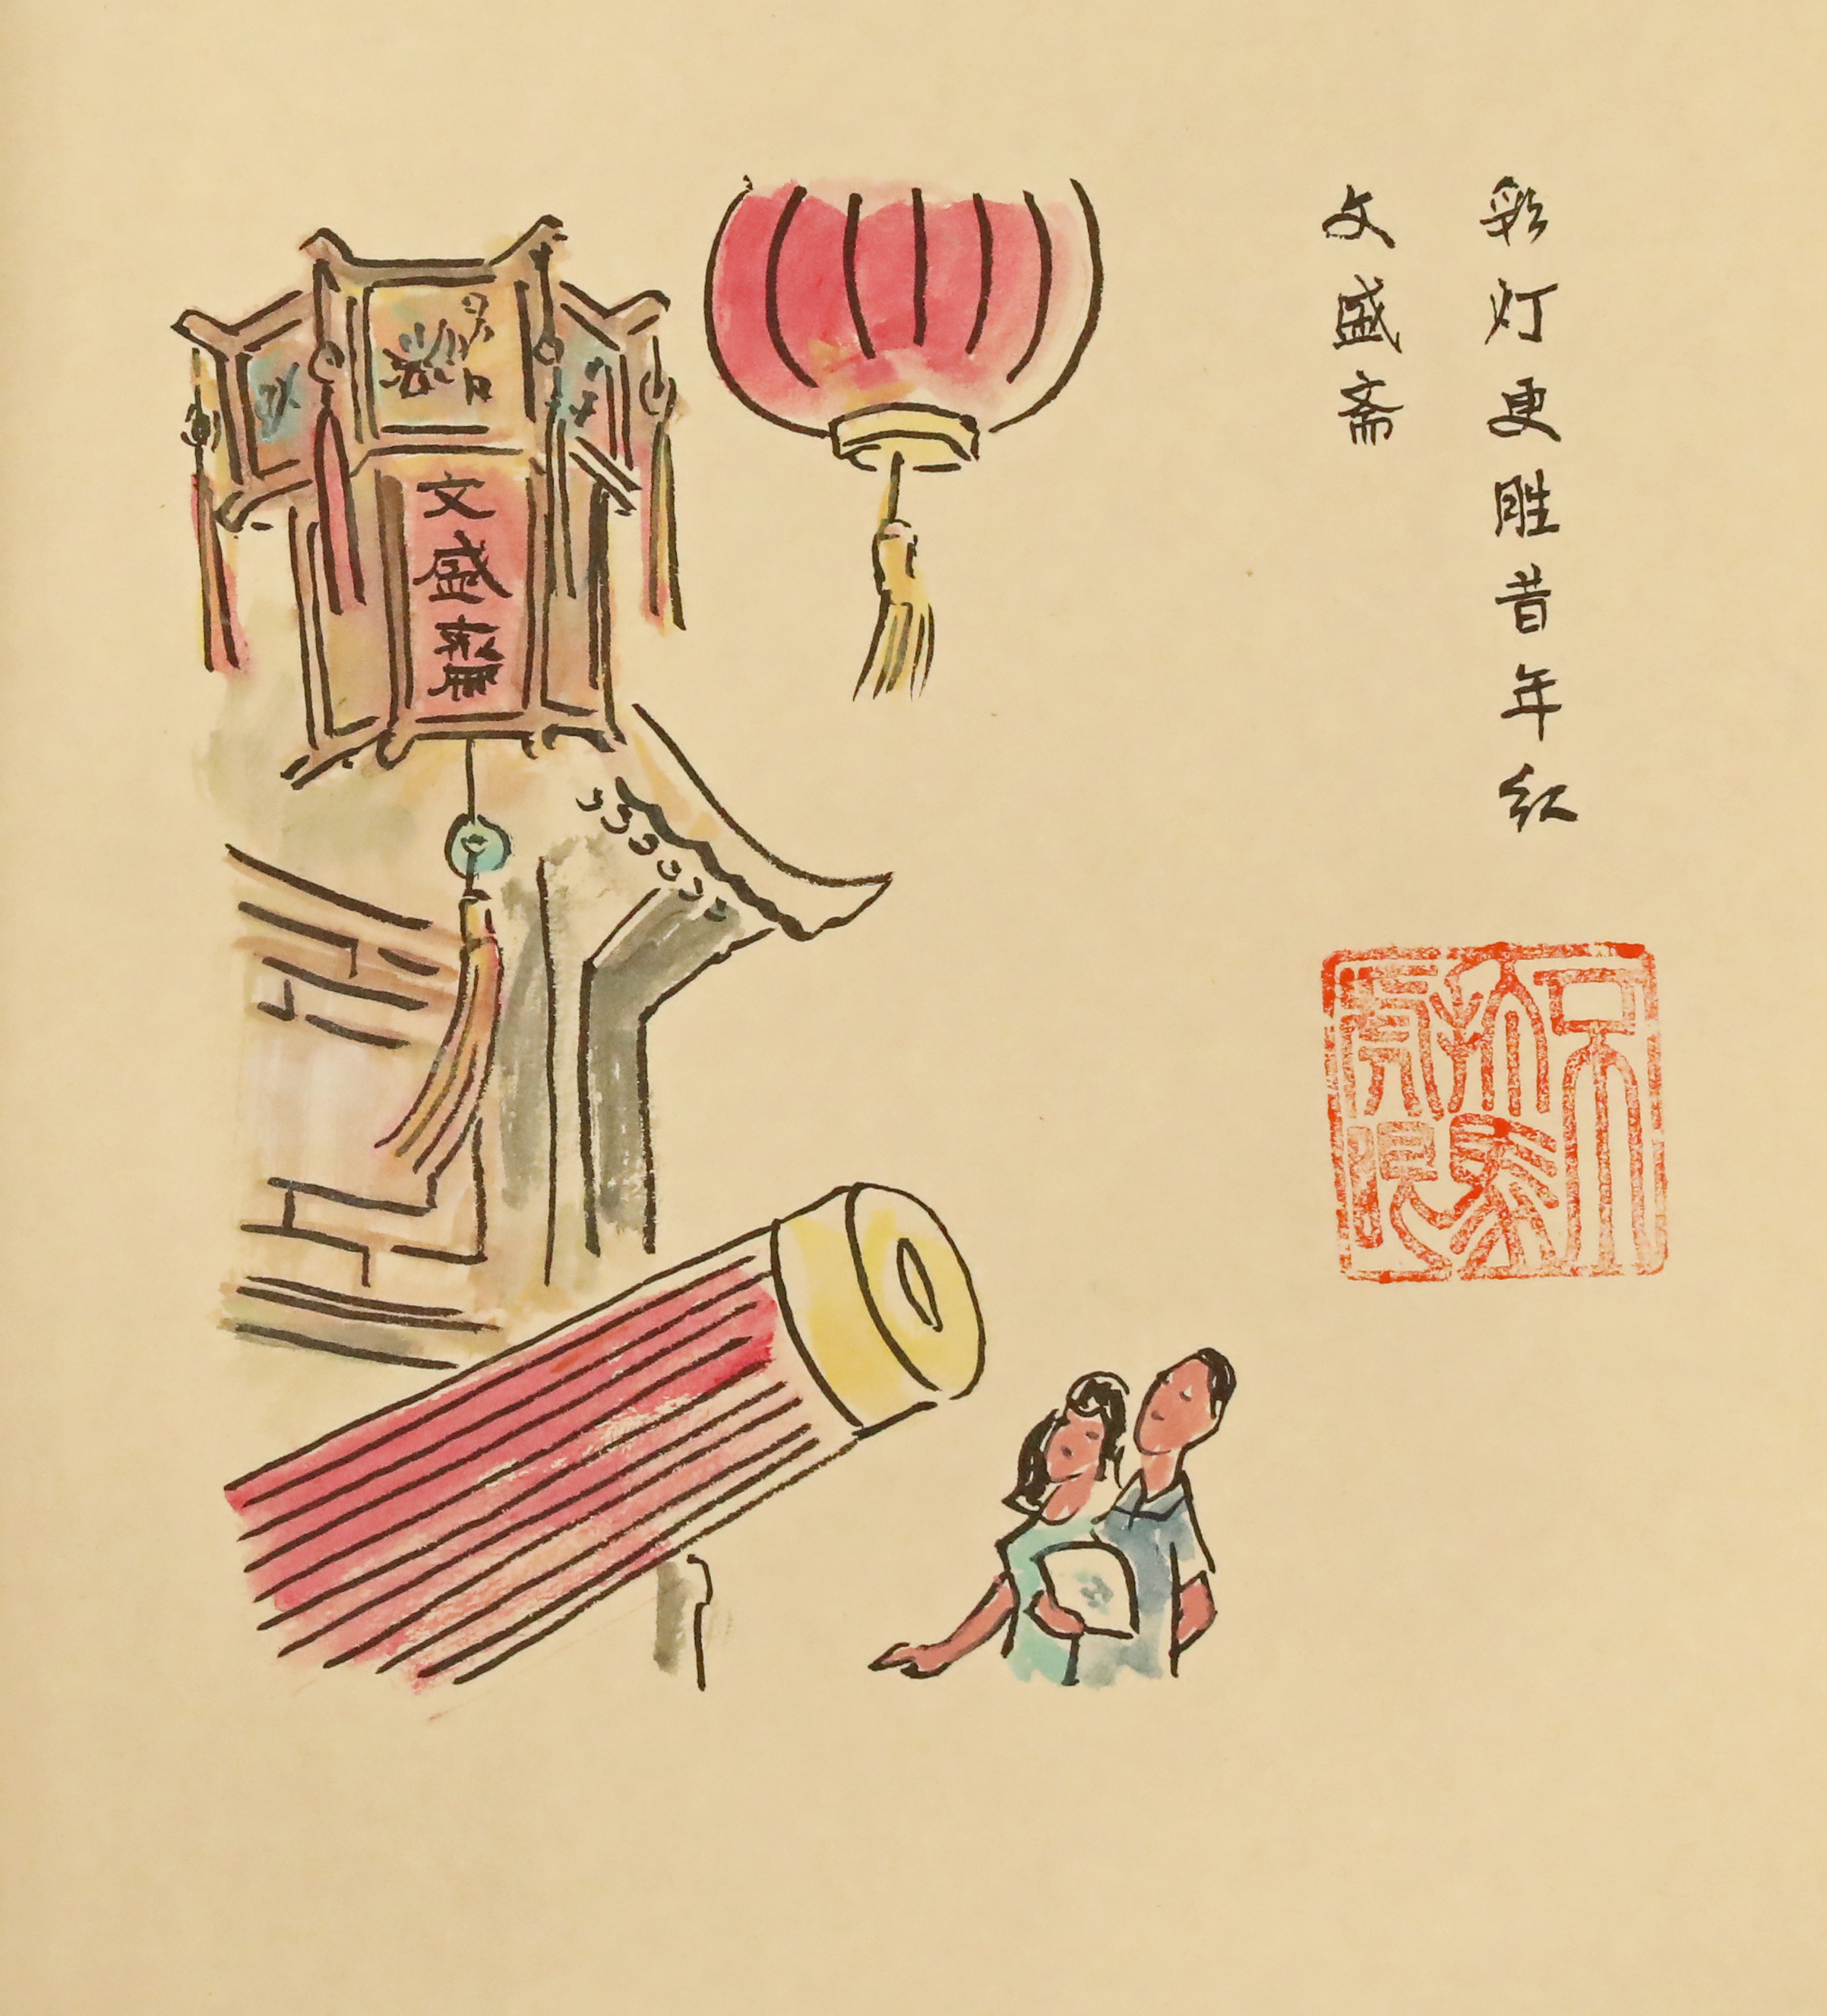 彩灯更胜昔年红
文盛斋
文盛齋